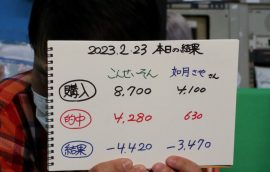 2023.2.23 本日の結果
こんせいそん 如月さやさん
購入 8,700 4,100
的中 4,280 630
結果 -4,420 -3,470